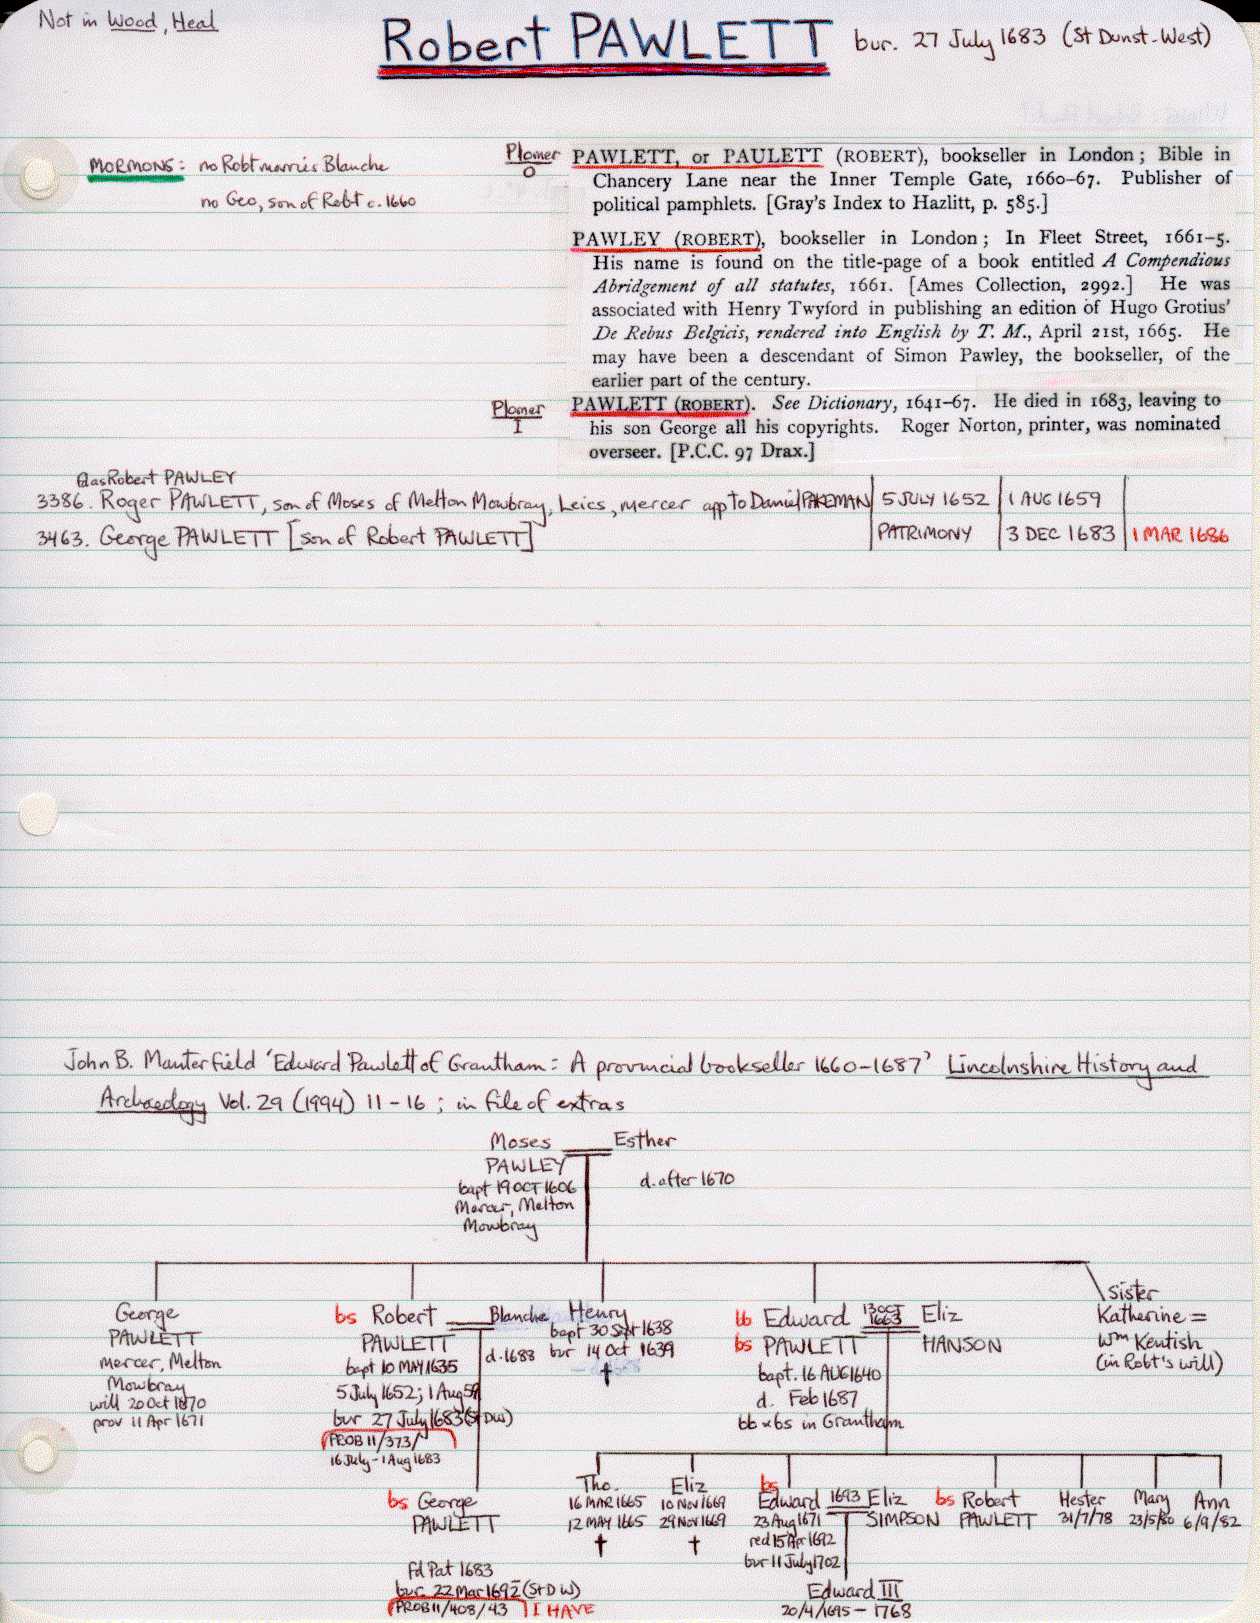 Not in Wood, Heal
Robert PAWLETT bur. 27 July 1683 (St Dunst-West)
MORMONS: no Robt marries Blanche
no Geo, son of Robt c. 1660
Plomer
0
PAWLETT, or PAULETT (ROBERT), bookseller in London; Bible in
Chancery Lane near the Inner Temple Gate, 1660–67. Publisher of
political pamphlets. [Gray's Index to Hazlitt, p. 585.]
PAWLEY (ROBERT), bookseller in London; In Fleet Street, 1661–5.
His name is found on the title-page of a book entitled A Compendious
Abridgement of all statutes, 1661. [Ames Collection, 2992.] He was
associated with Henry Twyford in publishing an edition of Hugo Grotius'
De Rebus Belgicis, rendered into English by T. M., April 21st, 1665. He
may have been a descendant of Simon Pawley, the bookseller, of the
earlier part of the century.
Plomer
I
PAWLETT (ROBERT). See Dictionary, 1641–67. He died in 1683, leaving to
his son George all his copyrights. Roger Norton, printer, was nominated
overseer. [P.C.C. 97 Drax.]
as Robert PAWLEY
3386. Roger PAWLETT, son of Moses of Melton Mowbray, Leics, mercer app to Daniel PAKEMAN 5 JULY 1652 1 AUG 1659
3463. George PAWLETT [son of Robert PAWLETT] PATRIMONY 3 DEC 1683 1 MAR 1686
John B. Manterfield 'Edward Pawlett of Grantham: A provincial bookseller 1660–1687' Lincolnshire History and
Archaeology Vol. 29 (1994) 11–16; in file of extras
Moses
PAWLEY
bapt 19 OCT 1606
Mercer, Melton
Mowbray
Esther
d. after 1670
George
PAWLETT
mercer, Melton
Mowbray
will 20 Oct 1670
prov 11 Apr 1671
bs Robert
PAWLETT
bapt 10 MAY 1635
5 July 1652; 1 Aug 59
bur 27 July 1683 (St DW)
PROB 11/373/
16 July – 1 Aug 1683
Blanche
d. 1683
Henry
bapt 30 Sept 1638
bur 14 Oct 1639
†
bb Edward
bs PAWLETT
bapt. 16 AUG 1640
d. Feb 1687
bb × bs in Grantham
13 OCT
1663
Eliz
HANSON
Sister
Katherine =
Wm Kentish
(in Robt's will)
bs George
PAWLETT
Fd Pat 1683
bur. 22 Mar 1692 (St D W)
PROB 11/408/43 I HAVE
Tho.
16 MAR 1665
12 MAY 1665
†
Eliz
10 Nov 1669
29 Nov 1669
†
bs
Edward
23 Aug 1671
red 15 Apr 1692
bur 11 July 1702
1693
Eliz
SIMPSON
Edward III
20/4/1695 – 1768
bs Robert
PAWLETT
Hester
31/7/78
Mary
23/5/80
Ann
6/9/82